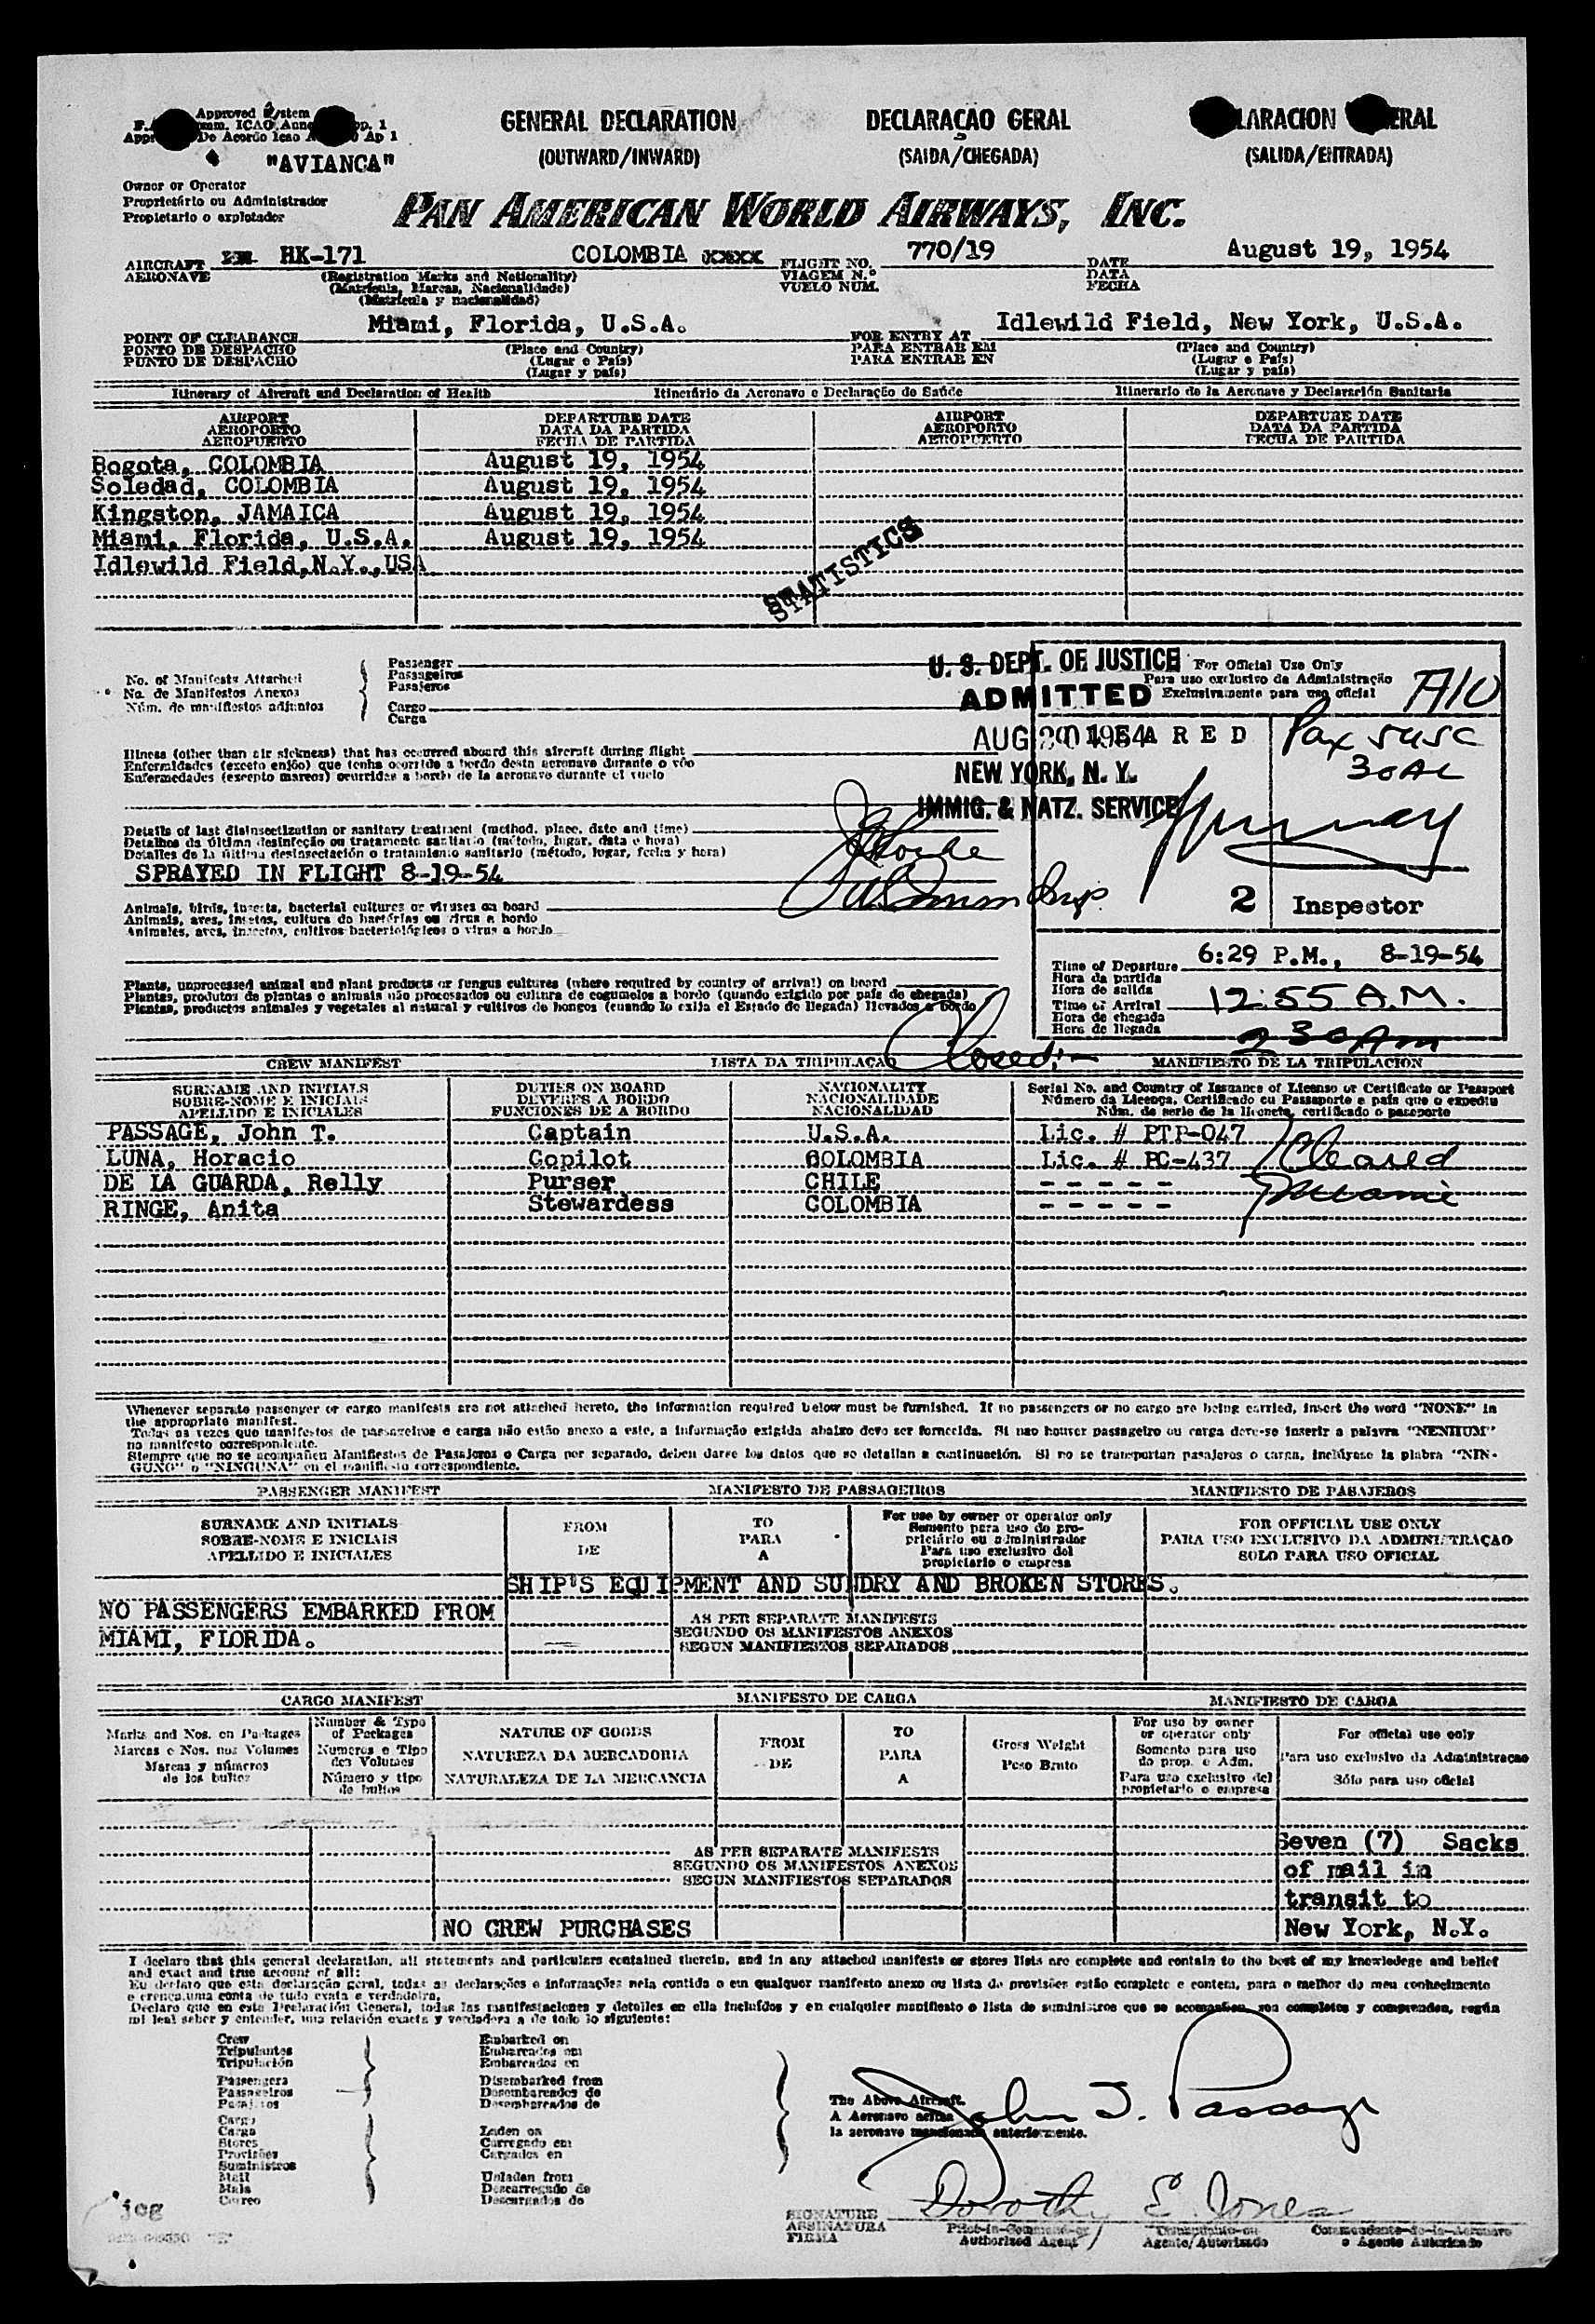 Approved System
"AVIANCA"
GENERAL DECLARATION
(OUTWARD/INWARD)
DECLARAÇÃO GERAL
(SAIDA/CHEGADA)
(SALIDA/ENTRADA)
Owner or Operator
Proprietário ou Administrador
Propietario o explotador
PAN AMERICAN WORLD AIRWAYS, INC.
AIRCRAFT HK-171 COLOMBIA xxxx FLIGHT NO. 770/19 DATE August 19, 1954
AERONAVE (Registration Marks and Nationality) VIAGEM N.º DATA
(Matrícula, Marcas, Nacionalidade) VUELO NUM. FECHA
(Matrícula y nacionalidad)
POINT OF CLEARANCE Miami, Florida, U.S.A. FOR ENTRY AT Idlewild Field, New York, U.S.A.
PONTO DE DESPACHO (Place and Country) PARA ENTRAR EM (Place and Country)
PUNTO DE DESPACHO (Lugar e País) PARA ENTRAR EN (Lugar e País)
(Lugar y país) (Lugar y país)
Itinerary of Aircraft and Declaration of Health Itinerário da Aeronave e Declaração de Saúde Itinerario de la Aeronave y Declaración Sanitaria
AIRPORT DEPARTURE DATE AIRPORT DEPARTURE DATE
AEROPORTO DATA DA PARTIDA AEROPORTO DATA DA PARTIDA
AEROPUERTO FECHA DE PARTIDA AEROPUERTO FECHA DE PARTIDA
Bogota, COLOMBIA August 19, 1954
Soledad, COLOMBIA August 19, 1954
Kingston, JAMAICA August 19, 1954
Miami, Florida, U.S.A. August 19, 1954
Idlewild Field,N.Y.,USA
STATISTICS
No. of Manifests Attached
No. de Manifestos Anexos
Núm. de manifiestos adjuntos
Passenger
Passageiros
Pasajeros
Cargo
Carga
U. S. DEPT. OF JUSTICE
ADMITTED
AUG 20 1954
NEW YORK, N. Y.
IMMIG. & NATZ. SERVICE
For Official Use Only
Para uso exclusivo da Administração
Exclusivamente para uso oficial
Pax
2 Inspector
Illness (other than air sickness) that has occurred aboard this aircraft during flight
Enfermidades (exceto enjôo) que tenha ocorrido a bordo desta aeronave durante o vôo
Enfermedades (excepto mareos) ocurridas a bordo de la aeronave durante el vuelo
Details of last disinsectization or sanitary treatment (method, place, date and time)
Detalhes da última desinfeção ou tratamento sanitario (método, lugar, data e hora)
Detalles de la última desinsectación o tratamiento sanitario (método, lugar, fecha y hora)
SPRAYED IN FLIGHT 8-19-54
Animals, birds, insects, bacterial cultures or viruses on board
Animais, aves, insetos, cultura de bactérias ou virus a bordo
Animales, aves, insectos, cultivos bacteriológicos o virus a bordo
Plants, unprocessed animal and plant products or fungus cultures (where required by country of arrival) on board
Plantas, produtos de plantas e animais não processados ou cultura de cogumelos a bordo (quando exigido por país de chegada)
Plantas, productos animales y vegetales al natural y cultivos de hongos (cuando lo exija el Estado de llegada) llevados a bordo
Time of Departure 6:29 P.M., 8-19-54
Hora da partida
Hora de salida
Time of Arrival 12:55 A.M.
Hora de chegada
Hora de llegada 2 30 Am
CREW MANIFEST LISTA DA TRIPULAÇAO MANIFIESTO DE LA TRIPULACION
SURNAME AND INITIALS DUTIES ON BOARD NATIONALITY Serial No. and Country of Issuance of License or Certificate or Passport
SOBRE-NOME E INICIAIS DEVERES A BORDO NACIONALIDADE Número da Licença, Certificado ou Passaporte e país que o expediu
APELLIDO E INICIALES FUNCIONES DE A BORDO NACIONALIDAD Núm. de serie de la licencia, certificado o pasaporte
PASSAGE, John T. Captain U.S.A. Lic. # PTP-047
LUNA, Horacio Copilot COLOMBIA Lic. # PC-437 Cleared
DE LA GUARDA, Relly Purser CHILE - - - - -
RINGE, Anita Stewardess COLOMBIA - - - - -
Whenever separate passenger or cargo manifests are not attached hereto, the information required below must be furnished. If no passengers or no cargo are being carried, insert the word "NONE" in
the appropriate manifest.
Todas as vezes que manifestos de passageiros e carga não estão anexo a este, a informação exigida abaixo deve ser fornecida. Si nao houver passageiro ou carga deve-se inserir a palavra "NENHUM"
no manifesto correspondente.
Siempre que no se acompañen Manifiestos de Pasajeros o Carga por separado, deben darse los datos que se detallan a continuación. Si no se transportan pasajeros o carga, inclúyase la plabra "NIN-
GUNO" o "NINGUNA" en el manifiesto correspondiente.
PASSENGER MANIFEST MANIFESTO DE PASSAGEIROS MANIFIESTO DE PASAJEROS
SURNAME AND INITIALS
SOBRE-NOME E INICIAIS
APELLIDO E INICIALES
FROM
DE
TO
PARA
A
For use by owner or operator only
Somento para uso do pro-
prietário ou administrador
Para uso exclusivo del
propietario o empresa
FOR OFFICIAL USE ONLY
PARA USO EXCLUSIVO DA ADMINISTRAÇAO
SOLO PARA USO OFICIAL
SHIP'S EQUIPMENT AND SUNDRY AND BROKEN STORES.
NO PASSENGERS EMBARKED FROM
MIAMI, FLORIDA.
AS PER SEPARATE MANIFESTS
SEGUNDO OS MANIFESTOS ANEXOS
SEGUN MANIFIESTOS SEPARADOS
CARGO MANIFEST MANIFESTO DE CARGA MANIFIESTO DE CARGA
Marks and Nos. on Packages
Marcas e Nos. nos Volumes
Marcas y números
de los bultos
Number & Type
of Packages
Numeros e Tipo
des Volumes
Número y tipo
de bultos
NATURE OF GOODS
NATUREZA DA MERCADORIA
NATURALEZA DE LA MERCANCIA
FROM
DE
TO
PARA
A
Gross Weight
Peso Bruto
For use by owner
or operator only
Somento para uso
do prop. e Adm.
Para uso exclusivo del
propietario o empresa
For official use only
Para uso exclusivo da Administracao
Sólo para uso oficial
AS PER SEPARATE MANIFESTS
SEGUNDO OS MANIFESTOS ANEXOS
SEGUN MANIFIESTOS SEPARADOS
Seven (7) Sacks
of mail in
transit to
New York, N.Y.
NO CREW PURCHASES
I declare that this general declaration, all statements and particulars contained therein, and in any attached manifests or stores lists are complete and contain to the best of my knowledege and belief
and exact and true account of all:
Eu declaro que esta declaração geral, todas as declarações e informações nela contida o em qualquer manifesto anexo ou lista de provisões estão completo e contem, para o melhor do meu conhecimento
e crença,uma conta de tudo exata e verdadeira.
Declaro que en esta Declaración General, todas las manifestaciones y detalles en ella incluídos y en cualquier manifiesto o lista de suministros que se acompañen, son completos y comprenden, según
mi leal saber y entender, una relación exacta y verdadera a de todo lo siguiente:
Crew
Tripulantes
Tripulación
Passengers
Passageiros
Pasajeros
Cargo
Carga
Stores
Provisões
Suministros
Mail
Mala
Correo
Embarked on
Embarcados em
Embarcados en
Disembarked from
Desembarcados de
Desembarcados de
Laden on
Carregado em
Cargados en
Unladen from
Descarregado de
Descargados de
The Above Aircraft.
A Aeronave acima
la aeronave mencionada anteriormente.
John T. Passage
Dorothy E. Jones
SIGNATURE
ASSINATURA
FIRMA
Pilot-in-Command or
Authorized Agent
Agente Autorizado
Comandante-de-la-Aeronave
o Agente Autorizado
jcg